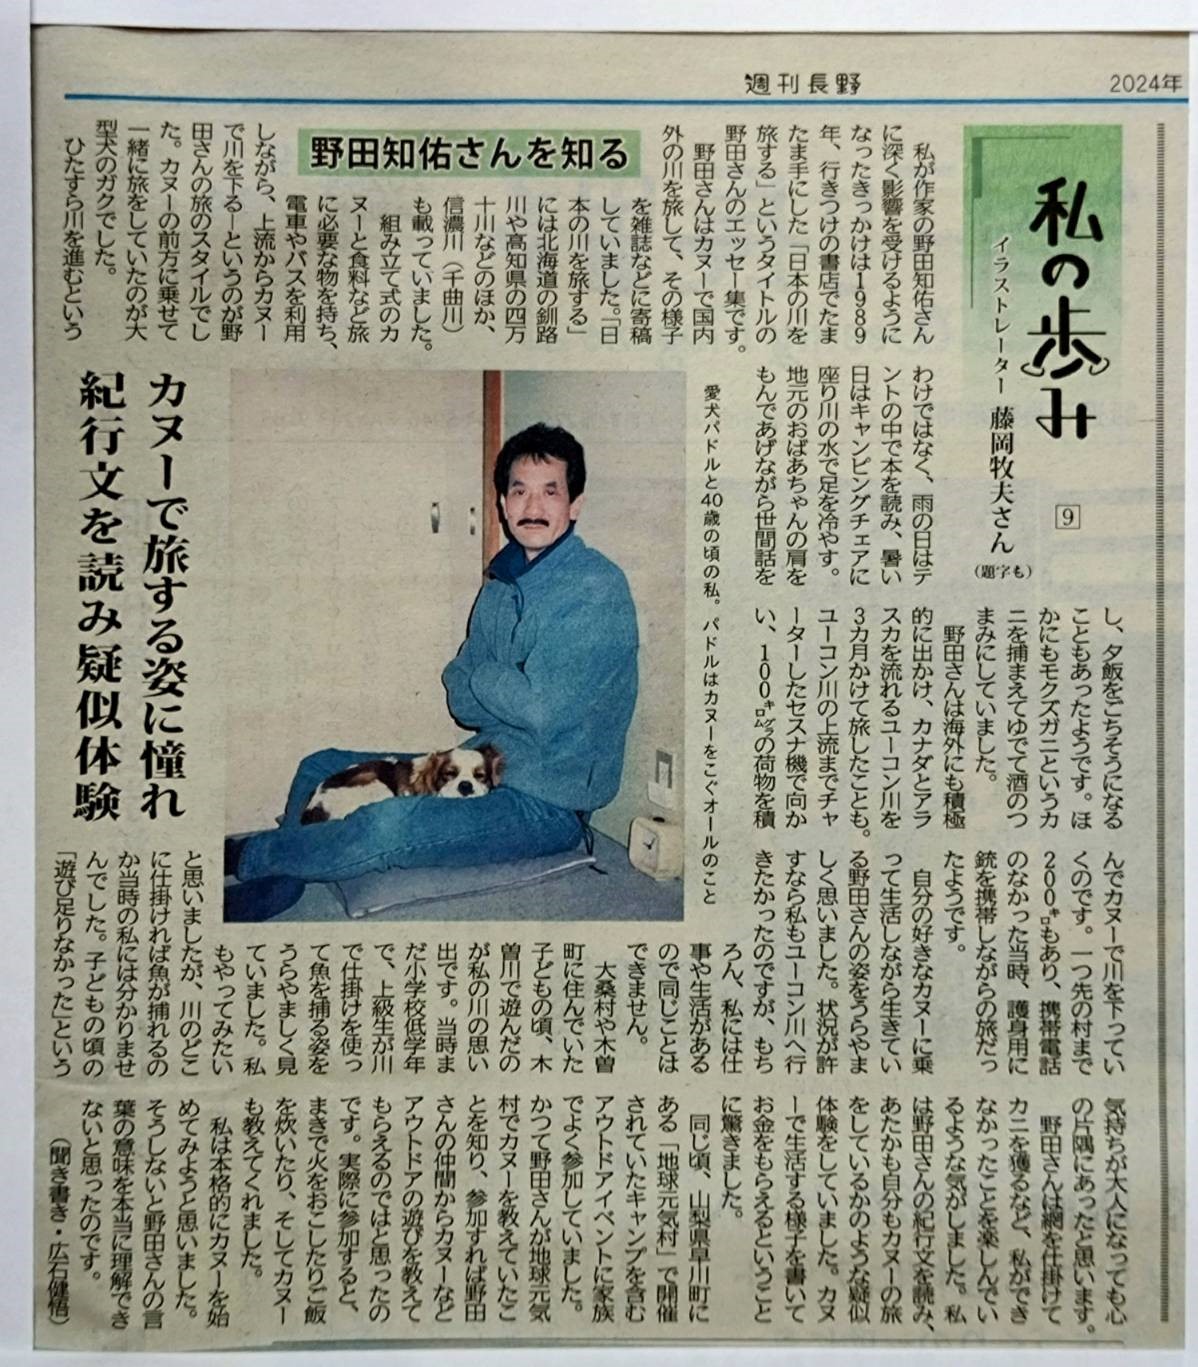 週刊長野
2024年
私の歩み
9
イラストレーター 藤岡牧夫さん
(題字も)
野田知佑さんを知る
カヌーで旅する姿に憧れ
紀行文を読み疑似体験
私が作家の野田知佑さん
に深く影響を受けるように
なったきっかけは1989
年、行きつけの書店でたま
たま手にした「日本の川を
旅する」というタイトルの
野田さんのエッセー集です。
野田さんはカヌーで国内
外の川を旅して、その様子
を雑誌などに寄稿
していました。「日
本の川を旅する」
には北海道の釧路
川や高知県の四万
十川などのほか、
信濃川(千曲川)
も載っていました。
組み立て式のカ
ヌーと食料など旅
に必要な物を持ち、
電車やバスを利用
しながら、上流からカヌー
で川を下る―というのが野
田さんの旅のスタイルでし
た。カヌーの前方に乗せて
一緒に旅をしていたのが大
型犬のガクでした。
ひたすら川を進むという
わけではなく、雨の日はテ
ントの中で本を読み、暑い
日はキャンピングチェアに
座り川の水で足を冷やす。
地元のおばあちゃんの肩を
もんであげながら世間話を
愛犬パドルと40歳の頃の私。パドルはカヌーをこぐオールのこと
し、夕飯をごちそうになる
こともあったようです。ほ
かにもモクズガニというカ
ニを捕まえてゆでて酒のつ
まみにしていました。
野田さんは海外にも積極
的に出かけ、カナダとアラ
スカを流れるユーコン川を
3カ月かけて旅したことも。
ユーコン川の上流までチャ
ーターしたセスナ機で向か
い、100㌔㌘の荷物を積
んでカヌーで川を下ってい
くのです。一つ先の村まで
200㌔もあり、携帯電話
のなかった当時、護身用に
銃を携帯しながらの旅だっ
たようです。
自分の好きなカヌーに乗
って生活しながら生きてい
る野田さんの姿をうらやま
しく思いました。状況が許
すなら私もユーコン川へ行
きたかったのですが、もち
ろん、私には仕
事や生活がある
ので同じことは
できません。
大桑村や木曽
町に住んでいた
子どもの頃、木
曽川で遊んだの
が私の川の思い
出です。当時ま
だ小学校低学年
で、上級生が川
で仕掛けを使っ
て魚を捕る姿を
うらやましく見
ていました。私
もやってみたい
と思いましたが、川のどこ
に仕掛ければ魚が捕れるの
か当時の私には分かりませ
んでした。子どもの頃の
「遊び足りなかった」という
気持ちが大人になっても心
の片隅にあったと思います。
野田さんは網を仕掛けて
カニを獲るなど、私ができ
なかったことを楽しんでい
るような気がしました。私
は野田さんの紀行文を読み、
あたかも自分もカヌーの旅
をしているかのような疑似
体験をしていました。カヌ
ーで生活する様子を書いて
お金をもらえるということ
に驚きました。
同じ頃、山梨県早川町に
ある「地球元気村」で開催
されていたキャンプを含む
アウトドアイベントに家族
でよく参加していました。
かつて野田さんが地球元気
村でカヌーを教えていたこ
とを知り、参加すれば野田
さんの仲間からカヌーなど
アウトドアの遊びを教えて
もらえるのではと思ったの
です。実際に参加すると、
まきで火をおこしたりご飯
を炊いたり、そしてカヌー
も教えてくれました。
私は本格的にカヌーを始
めてみようと思いました。
そうしないと野田さんの言
葉の意味を本当に理解でき
ないと思ったのです。
(聞き書き・広石健悟)